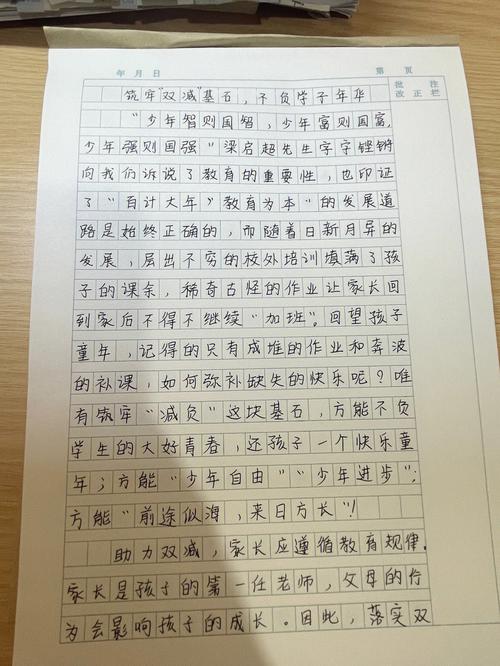 年 月 日
第 页
批 注
改 正 栏
筑牢"双减"基石，不负学子年华
"少年智则国智，少年富则国富，
少年强则国强"梁启超先生字字铿锵
向我们诉说了教育的重要性，也印证
了"百计大年"教育为本"的发展道
路是始终正确的，而随着日新月异的
发展，层出不穷的校外培训填满了孩
子的课余，稀奇古怪的作业让家长回
到家后不得不继续"加班"。回望孩子
童年，记得的只有成堆的作业和奔波
的补课，如何弥补缺失的快乐呢？唯
有筑牢"减负"这块基石，方能不负
学生的大好青春，还孩子一个快乐童
年；方能"少年自由""少年进步"；
方能"前途似海，来日方长"！
助力双减，家长应遵循教育规律。
家长是孩子的第一任老师，父母的行
为会影响孩子的成长。因此，落实双